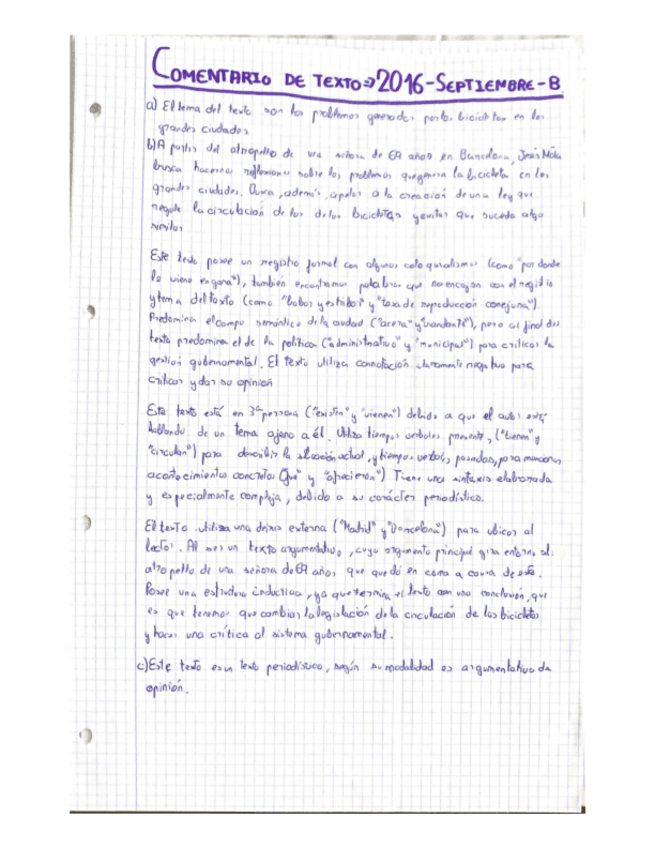 COMENTARIO DE TEXTO⇒2016-SEPTIEMBRE-B
a) El tema del texto son los problemas generados por las bicicletas en las
grandes ciudades
b) A partir del atropello de una señora de 69 años en Barcelona, Jesús Mota
busca hacernos reflexionar sobre los problemas que genera la bicicleta en las
grandes ciudades. Busca, además, apelar a la creación de una ley que
regule la circulación de las bicicletas y evitar que suceda algo
similar
Este texto posee un registro formal con algunos coloquialismos (como "por donde
le viene en gana"), también encontramos palabras que no encajan con el registro
y tema del texto (como "babor y estribor" y "tasa de reproducción conejuna").
Predomina el campo semántico de la ciudad ("acera" y "viandante"), pero al final del
texto predomina el de la política ("administrativo" y "municipal") para criticar la
gestión gubernamental. El texto utiliza connotación claramente negativa para
criticar y dar su opinión
Este texto está en 3ª persona ("existía" y "vienen") debido a que el autor está
hablando de un tema ajeno a él. Utiliza tiempos verbales presente, ("tienen" y
"circulan") para describir la situación actual, y tiempos verbales pasados, para mencionar
acontecimientos concretos y "aparecieron") Tiene una sintaxis elaborada
y especialmente compleja, debido a su carácter periodístico.
El texto utiliza una deixis externa ("Madrid" y "Barcelona") para ubicar al
lector. Al ser un texto argumentativo, cuyo argumento principal gira entorno al
atropello de una señora de 69 años, que quedó en coma a causa de este.
Posee una estructura inductiva, ya que termina el texto con una conclusión, que
es que tenemos que cambiar la legislación de la circulación de las bicicletas
y hacer una crítica al sistema gubernamental.
c) Este texto es un texto periodístico, según su modalidad es argumentativo de
opinión.